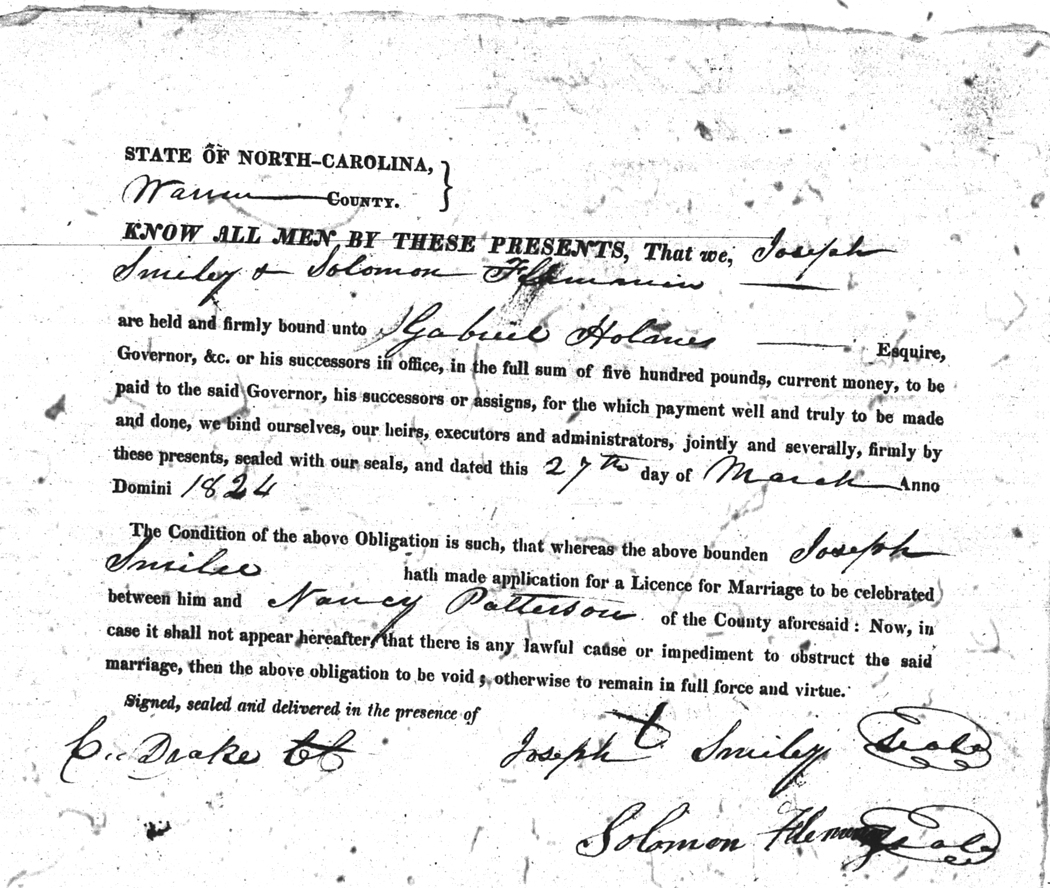 STATE OF NORTH-CAROLINA,
Warren County.
KNOW ALL MEN BY THESE PRESENTS, That we, Joseph
Smiley & Solomon Flemmin
are held and firmly bound unto Gabriel Holmes Esquire,
Governor, &c. or his successors in office, in the full sum of five hundred pounds, current money, to be
paid to the said Governor, his successors or assigns, for the which payment well and truly to be made
and done, we bind ourselves, our heirs, executors and administrators, jointly and severally, firmly by
these presents, sealed with our seals, and dated this 27th day of March Anno
Domini 1824
The Condition of the above Obligation is such, that whereas the above bounden Joseph
Smilee hath made application for a Licence for Marriage to be celebrated
between him and Nancy Patterson of the County aforesaid: Now, in
case it shall not appear hereafter, that there is any lawful cause or impediment to obstruct the said
marriage, then the above obligation to be void; otherwise to remain in full force and virtue.
Signed, sealed and delivered in the presence of
C. Drake Joseph Smiley Seale
Solomon Seale